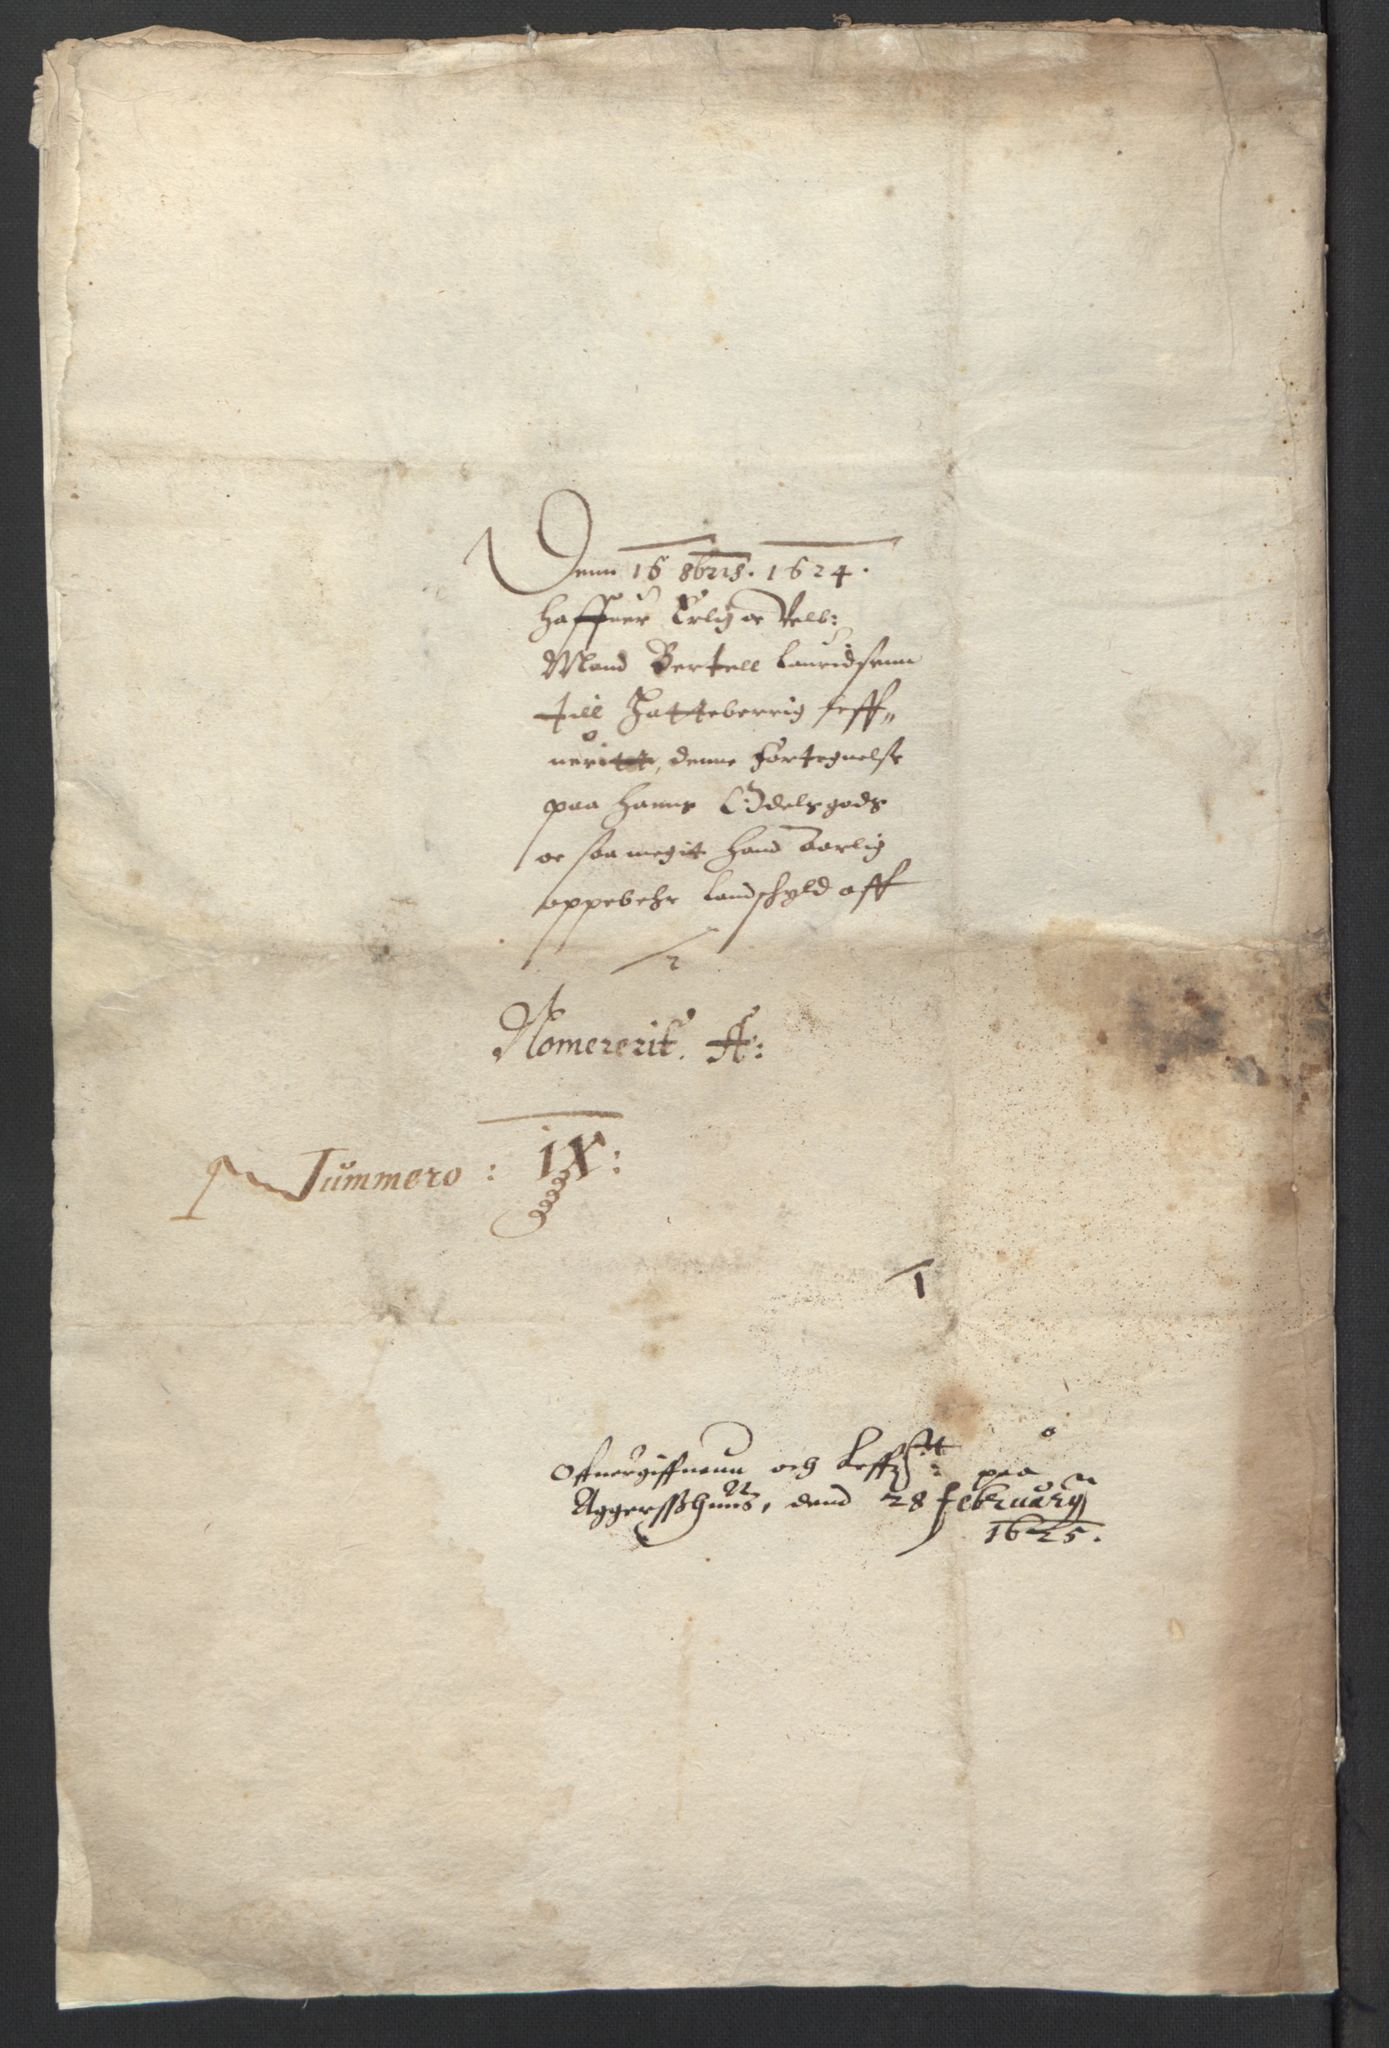 Denn 16 8bris. 1624.
Haffuer Erlig oc Velb:
Mand Bertell Lauridsenn
till Jatteberrig leff„
ueritt, denne Fortegnelse
paa hanns Oddelsgods
oc saa megit hand aarlig
oppebehr Landschyld aff
Nomererit. A:
Nummero : iX:
1
Offuergiffuenn och Leff: paa
Aggersshuus, dend 28 february
1625.